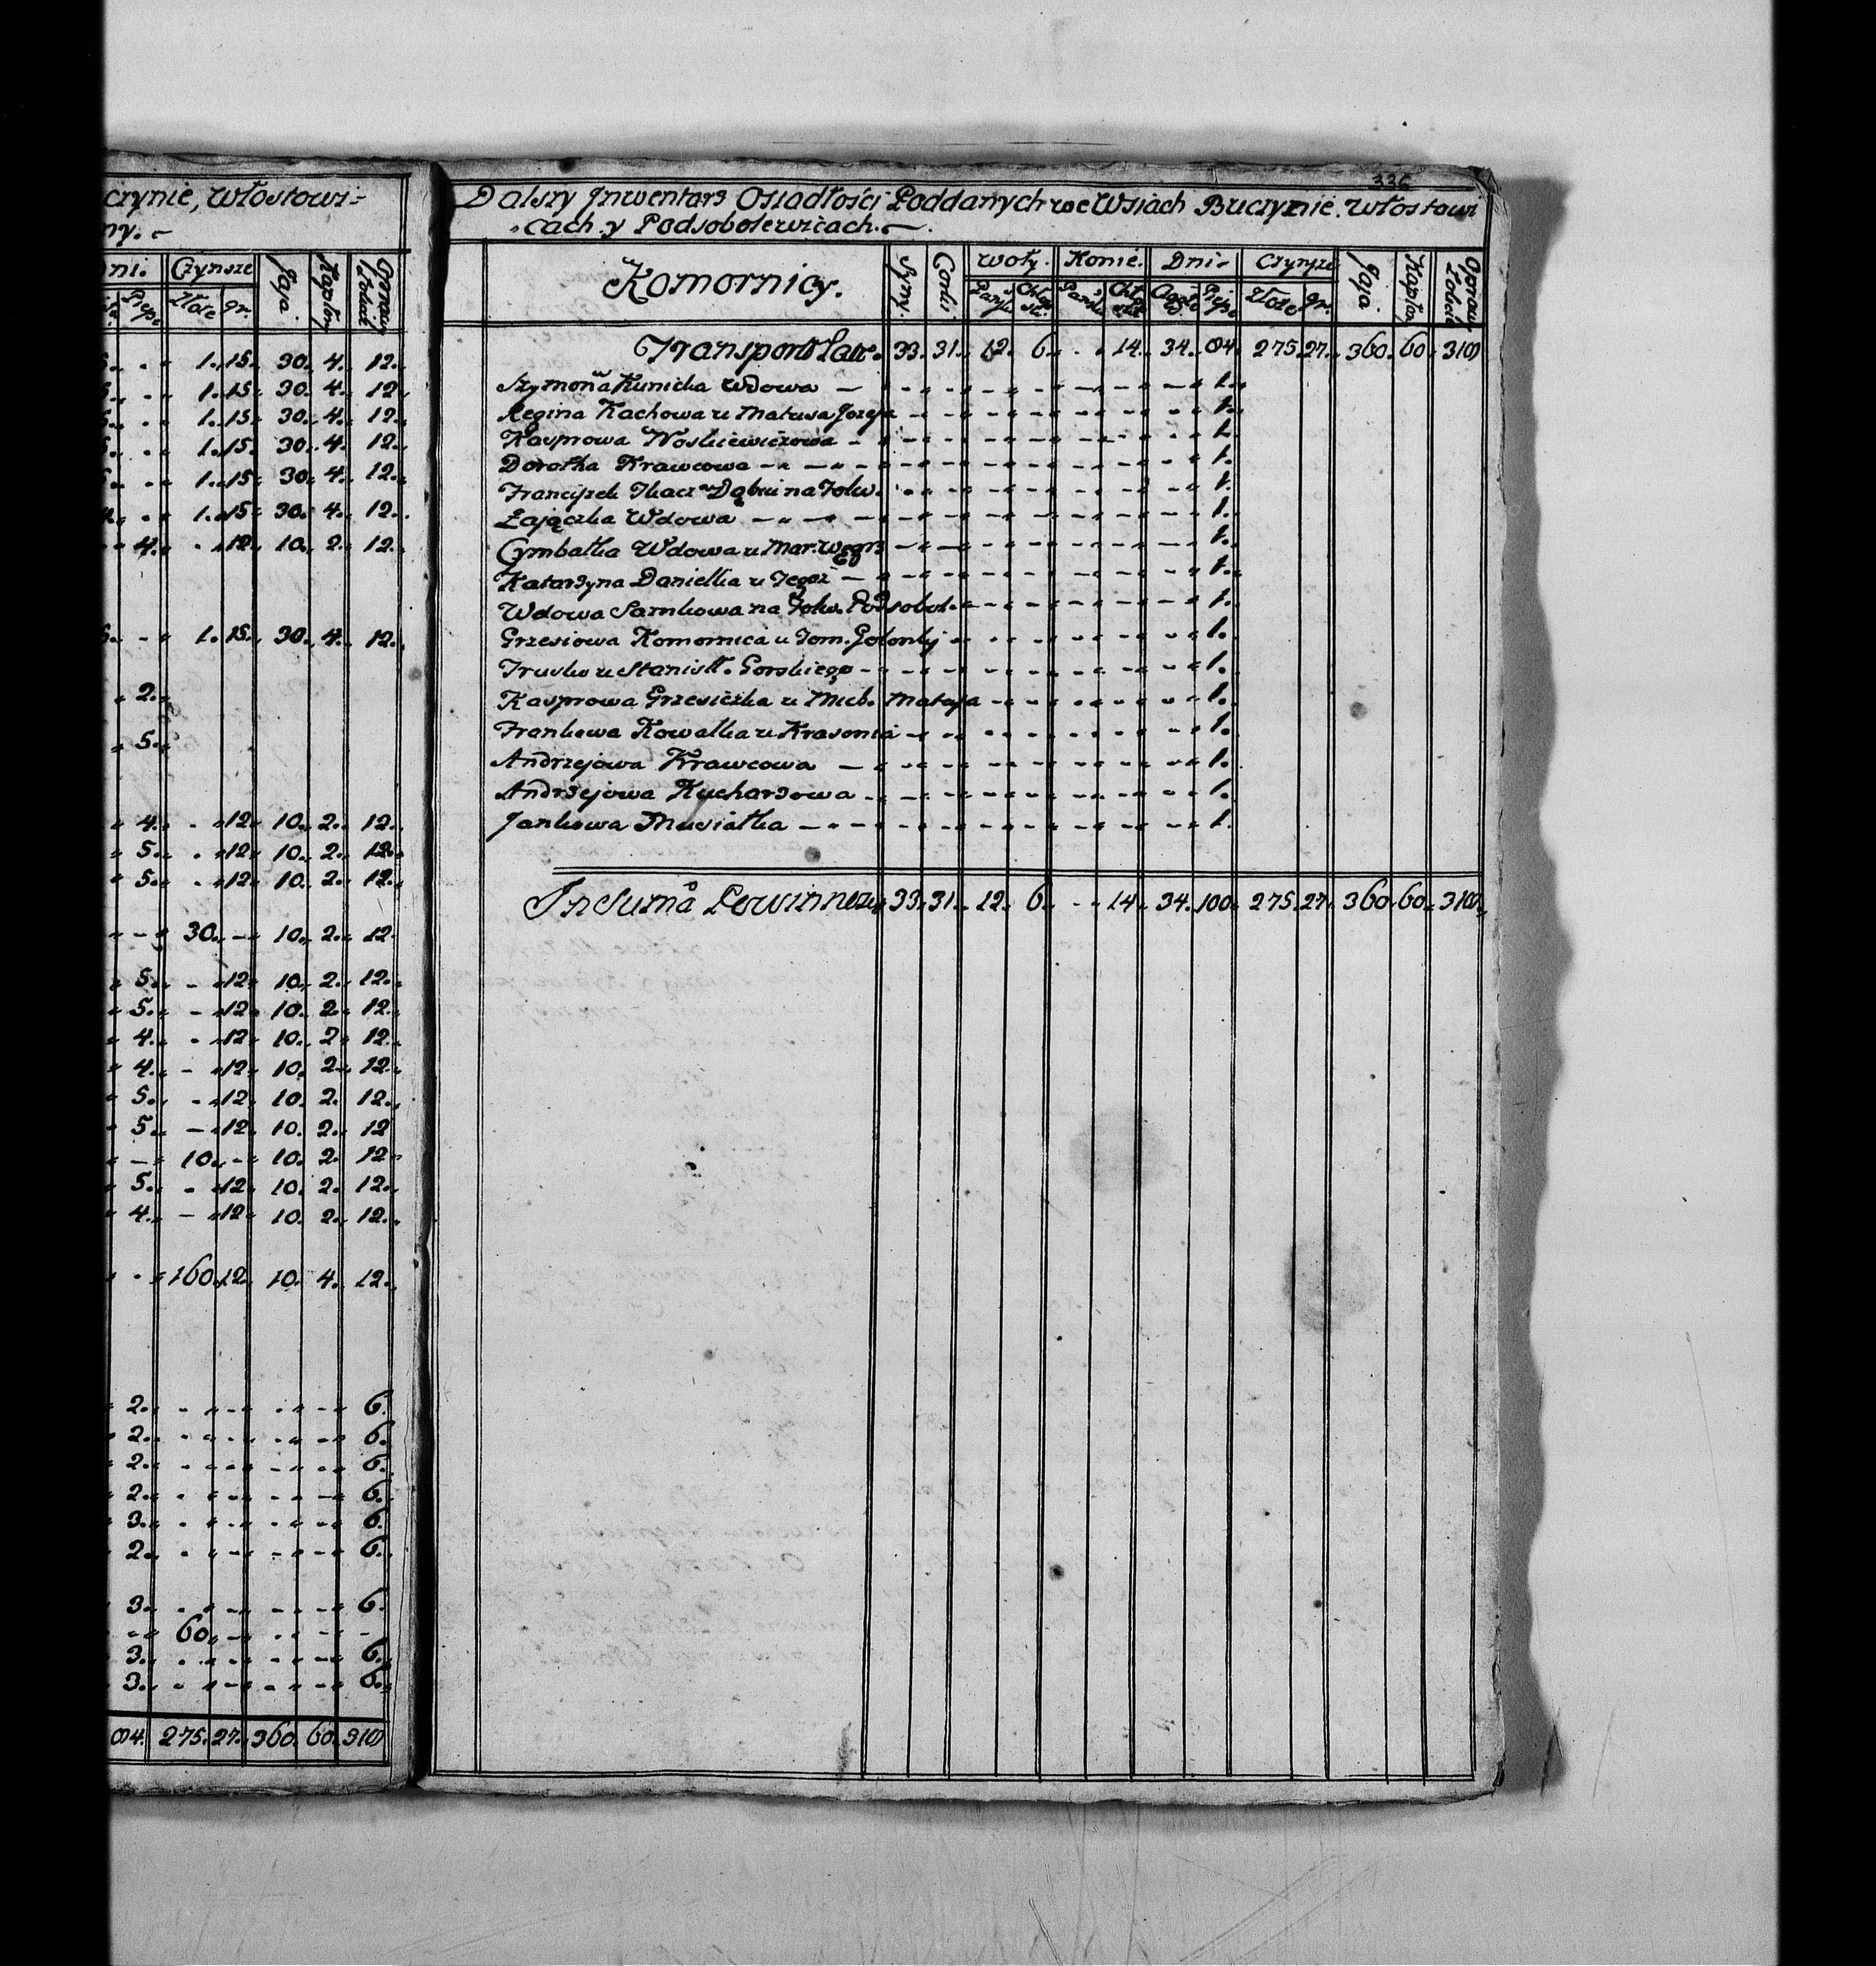 czynie, Włostowi=
ny.
Dni. Czynsze Jaja. Kapłony
Piesze Złote gr.
1. 15. 30. 4. 12.
1. 15. 30. 4. 12.
1. 15. 30. 4. 12.
1. 15. 30. 4. 12.
1. 15. 30. 4. 12.
1. 15. 30. 4. 12.
4. 12. 10. 2. 12.
1. 15. 30. 4. 12.
2.
5.
4. 12. 10. 2. 12.
5. 12. 10. 2. 12.
5. 12. 10. 2. 12.
30. 10. 2. 12.
5. 12. 10. 2. 12.
5. 12. 10. 2. 12.
4. 12. 10. 2. 12.
4. 12. 10. 2. 12.
5. 12. 10. 2. 12.
5. 12. 10. 2. 12
10. 10. 2. 12
5. 12. 10. 2. 12.
4. 12. 10. 2. 12.
160. 12. 10. 4. 12.
2. 6.
2. 6.
2. 6.
2. 6.
3. 6.
2. 6.
3. 6.
60.
3. 6.
3. 6.
84. 275. 27. 360. 60. 318
336
Dalszy Inwentarz Osiadłości Poddanych we Wsiach Buczynie. Włostowi
cach y Podsobolewicach.
Komornicy. Syny. Corki. Woły. Konie. Dni Czynsze Jaja. Kapłony
Złote gr.
Transport Lat. 33. 31. 12. 6. 14. 34. 84. 275. 27. 360. 60. 318
Szymona Kunicka Wdowa 1.
Regina Kachowa u Matusa Jozefa 1.
Kasprowa Woskiewiczowa 1.
Dorotka Krawcowa 1.
Franciszek Tkacz Dąbni na Folw. 1.
Zajączka Wdowa 1.
Cymbałka Wdowa u Mar. Węgrz 1.
Katarzyna Danielka u Tegoż 1.
Wdowa Samkowa na Folw. Podsobol. 1.
Grzesiowa Komornica u Tom. Golonki 1.
Truska u Stanisł. Gorskiego 1.
Kasprowa Grzesiczka u Mich. Matusa 1.
Frankowa Kowalka u Krasonia 1.
Andrzejowa Krawcowa 1.
Andrzejowa Kucharzowa 1.
Jankowa Musiałka 1.
In Suma Powinnosci 33. 31. 12. 6. 14. 34. 100. 275. 27. 360. 60. 318.